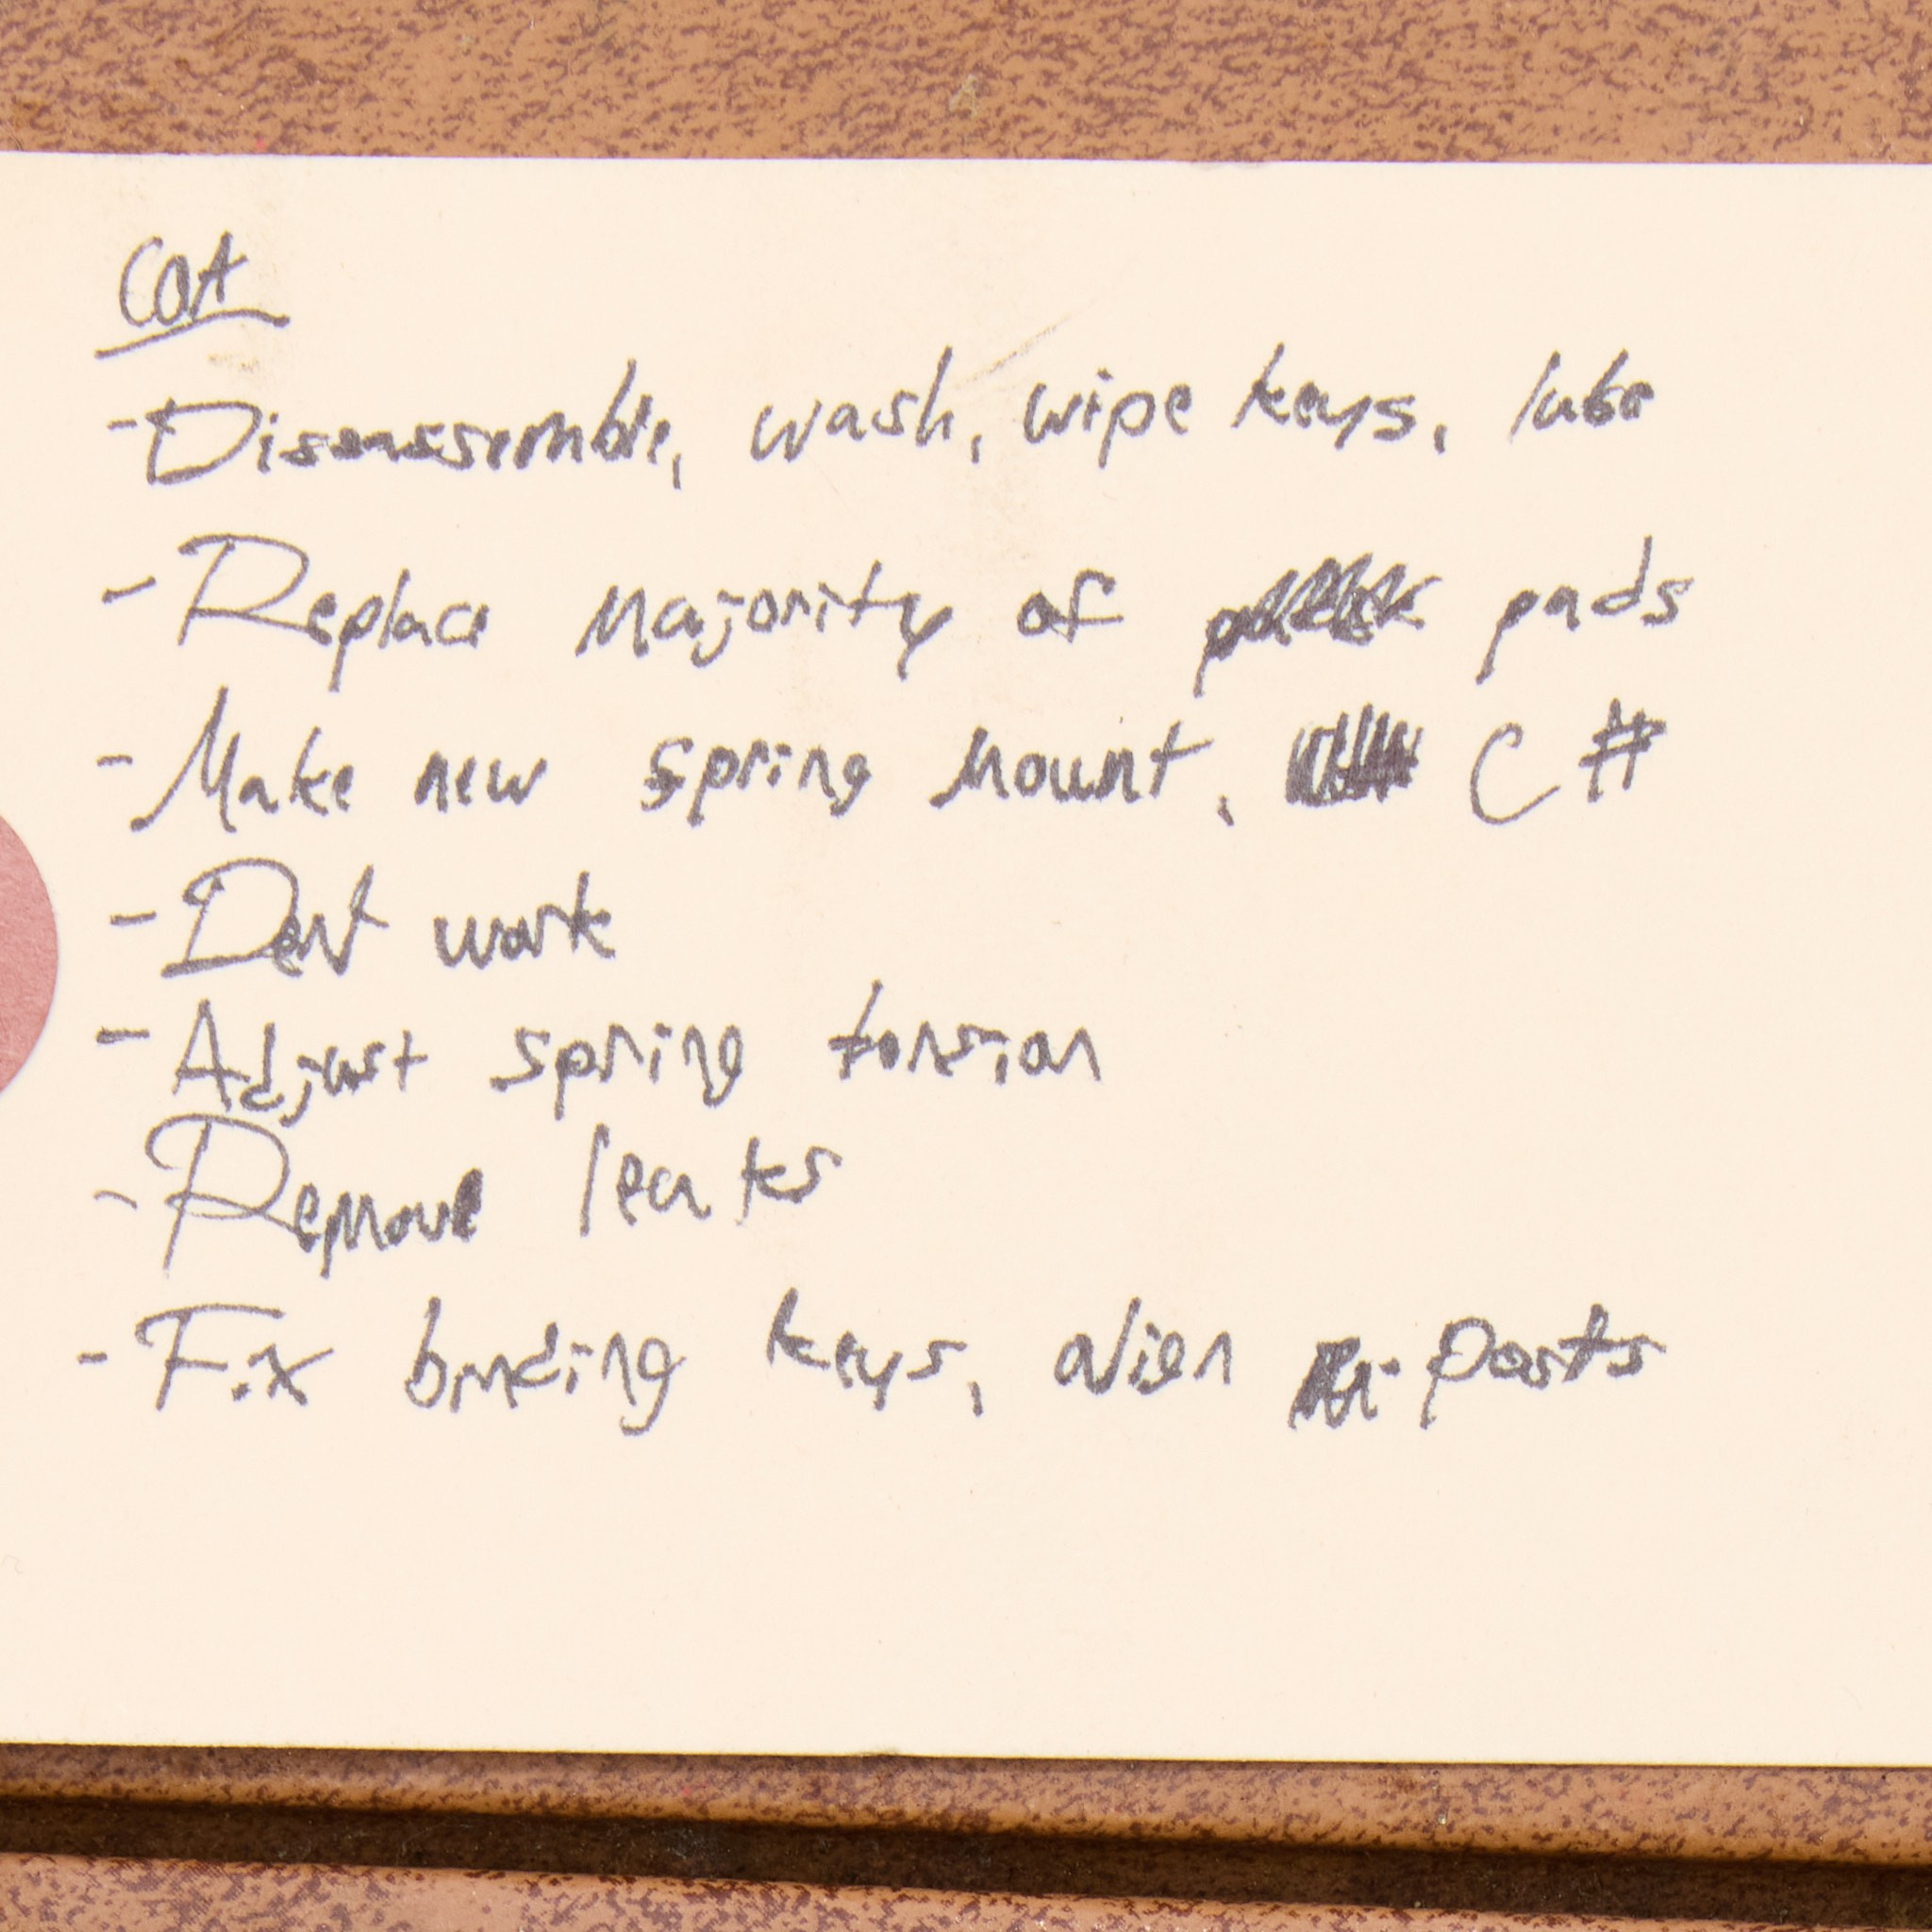 COA
- Diseassemble, wash, wipe keys, lube
- Replace majority of pads
- Make new spring mount, C #
- Dent work
- Adjust spring tension
- Remove leaks
- Fix binding keys, align posts